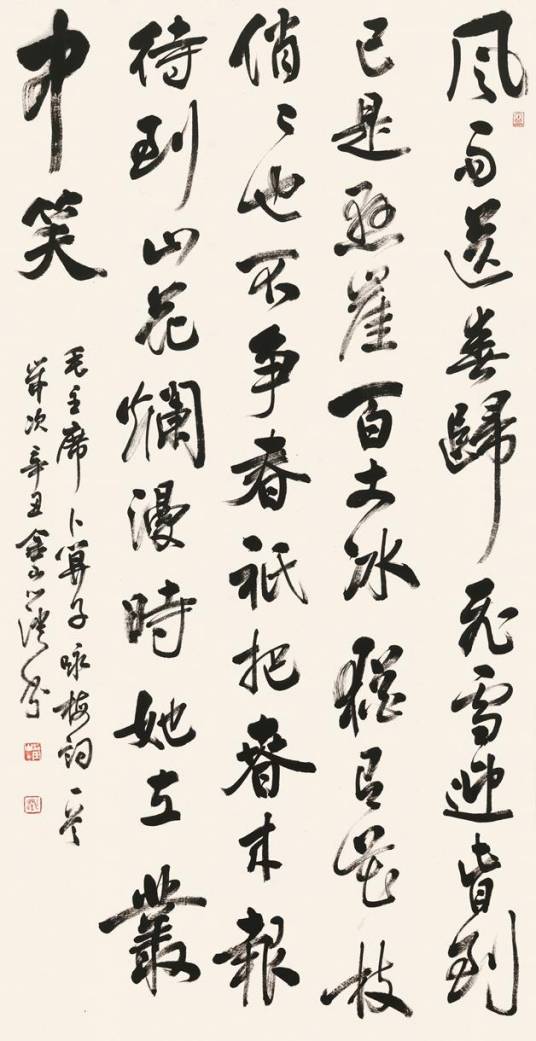 风雨送春歸飛雪迎春到
已是懸崖百丈冰猶有花枝
俏〻也不争春祇把春來報
待到山花爛漫時她在叢
中笑
毛主席卜算子咏梅詞一首
歲次辛丑